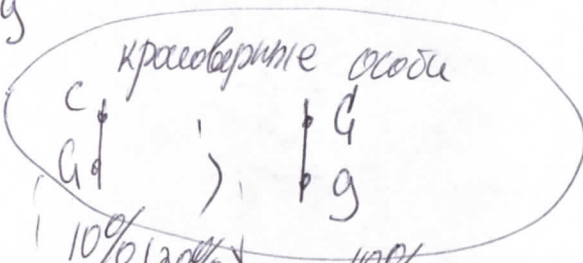 g
кроссоверные особи
c C
G ; g
10%